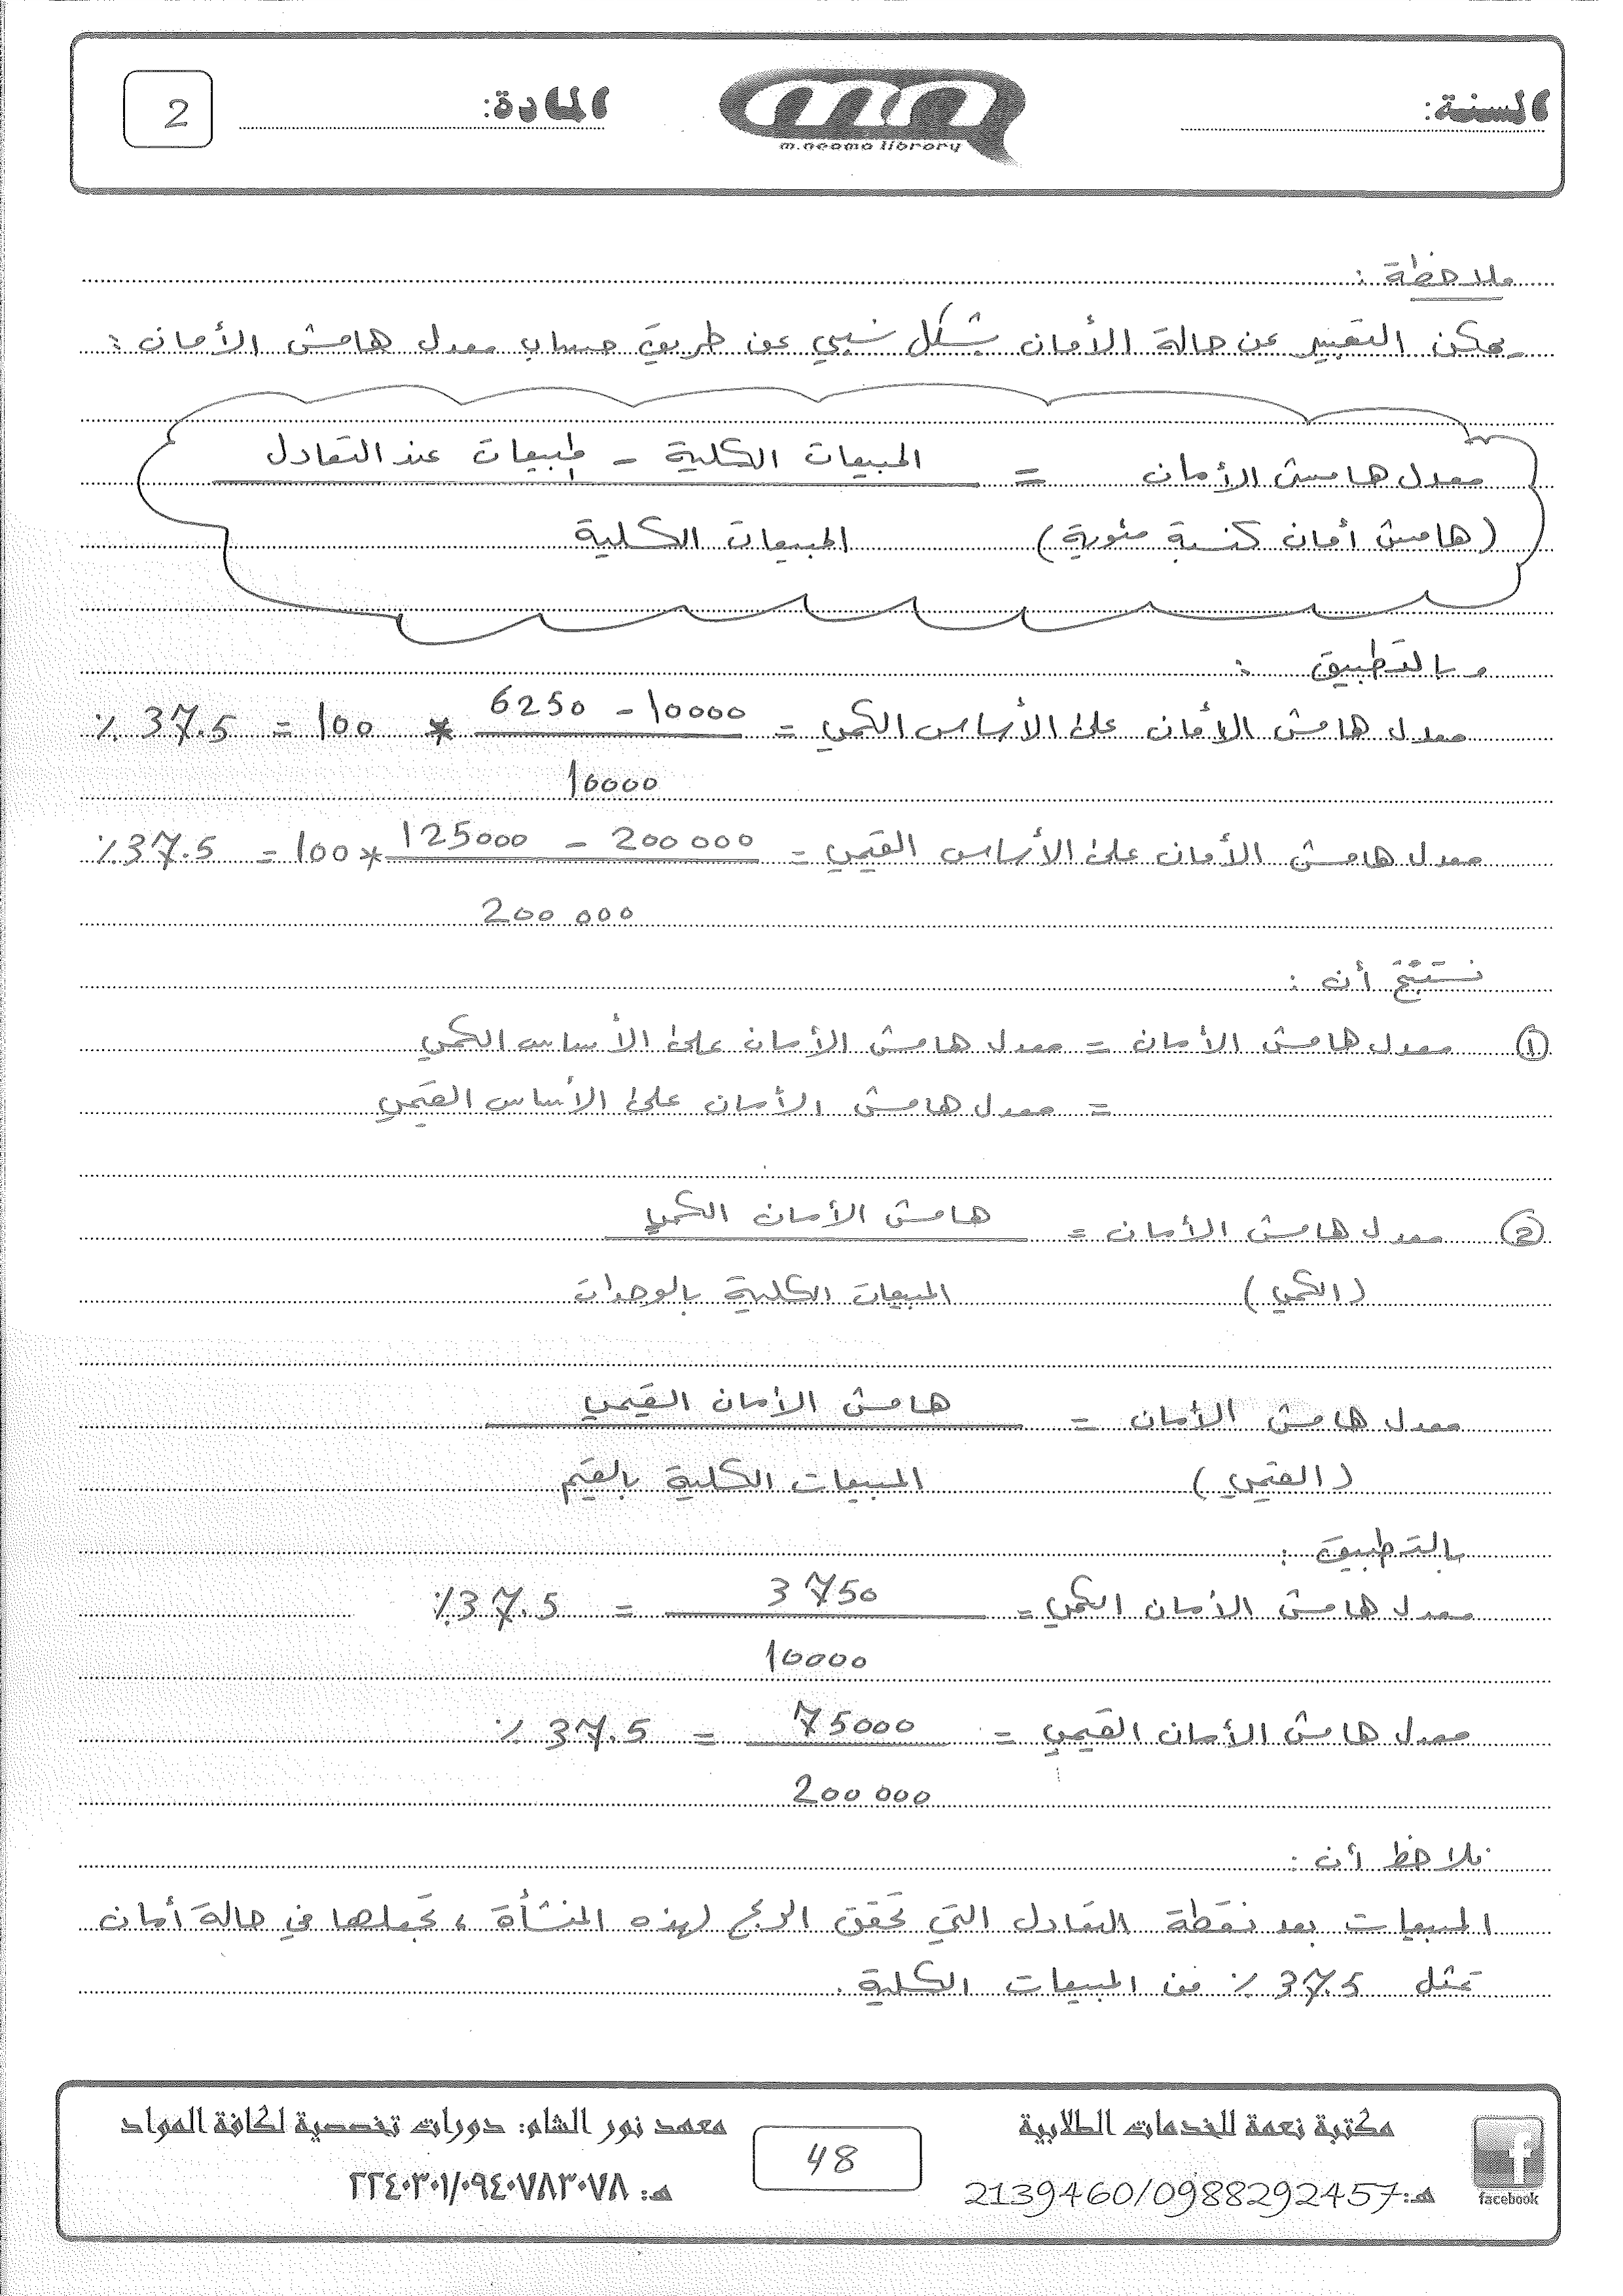 السنة:
m.neoma library
المادة:
2
ملاحظة :
يمكن التعبير عن حالة الأمان بشكل نسبي عن طريق حساب معدل هامش الأمان :
معدل هامش الأمان = المبيعات الكلية - مبيعات عند التعادل
(هامش أمان كنسبة مئوية) المبيعات الكلية
وبالتطبيق :
معدل هامش الأمان على الأساس الكمي = 10000 - 6250 * 100 = 37.5 ٪
10000
معدل هامش الأمان على الأساس القيمي = 200 000 - 125000 * 100 = 37.5 ٪
200 000
نستنتج أن :
① معدل هامش الأمان = معدل هامش الأمان على الأساس الكمي
= معدل هامش الأمان على الأساس القيمي
② معدل هامش الأمان = هامش الأمان الكمي
(الكمي) المبيعات الكلية بالوحدات
معدل هامش الأمان = هامش الأمان القيمي
(القيمي) المبيعات الكلية بالقيم
بالتطبيق :
معدل هامش الأمان الكمي = 3750 = 37.5 ٪
10000
معدل هامش الأمان القيمي = 75000 = 37.5 ٪
200 000
نلاحظ أن :
المبيعات بعد نقطة التعادل التي تحقق الربح لهذه المنشأة ، تجعلها في حالة أمان
تمثل 37.5 ٪ من المبيعات الكلية .
facebook
مكتبة نعمة للخدمات الطلابية
هـ: 2139460/0988292457
48
معهد نور الشام: دورات تخصصية لكافة المواد
هـ: ٢٢٤٠٣٠١/٠٩٤٠٧٨٣٠٧٨